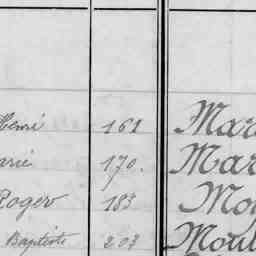 Henri 161 Mar
arie 170. Mar
Roger 183 Mo
Baptiste 203 Moul